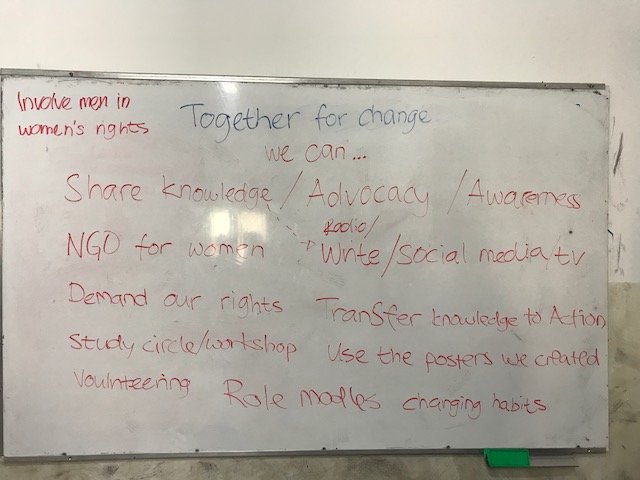 Involve men in
women's rights
Together for change
we can...
Share knowledge / Advocacy / Awareness
NGO for women
Radio/
Write/social media/tv
Demand our rights
Transfer knowledge to Action
Study circle/workshop
Use the posters we created
Voulnteering
Role modles
changing habits